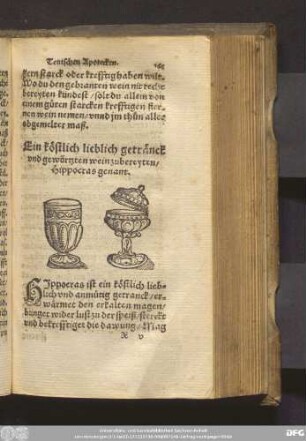 Teutschen Apotecken.
kern starck oder krefftig haben wilt.
Wo du den gebranten wein nit recht
bereyten kündest / solt du allein von
einem gůten starcken krefftigen fier-
nen wein nemen / vnnd jm thůn aller
obgemelter maß.
Ein köstlich lieblich getränck
vnd gewürtzten wein zubereyten /
Hippocras genant.
Hippocras ist ein köstlich lieb-
lich vnd anmütig getranck / er-
wärmet den erkalten magen /
bringet wider lust zu der speiß / sterckt
vnd bekrefftiget die dawung / Mag
R v